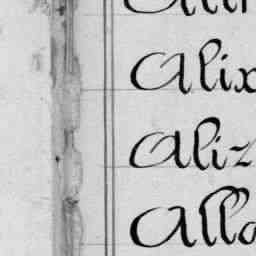 Alix
Aliz
Allo